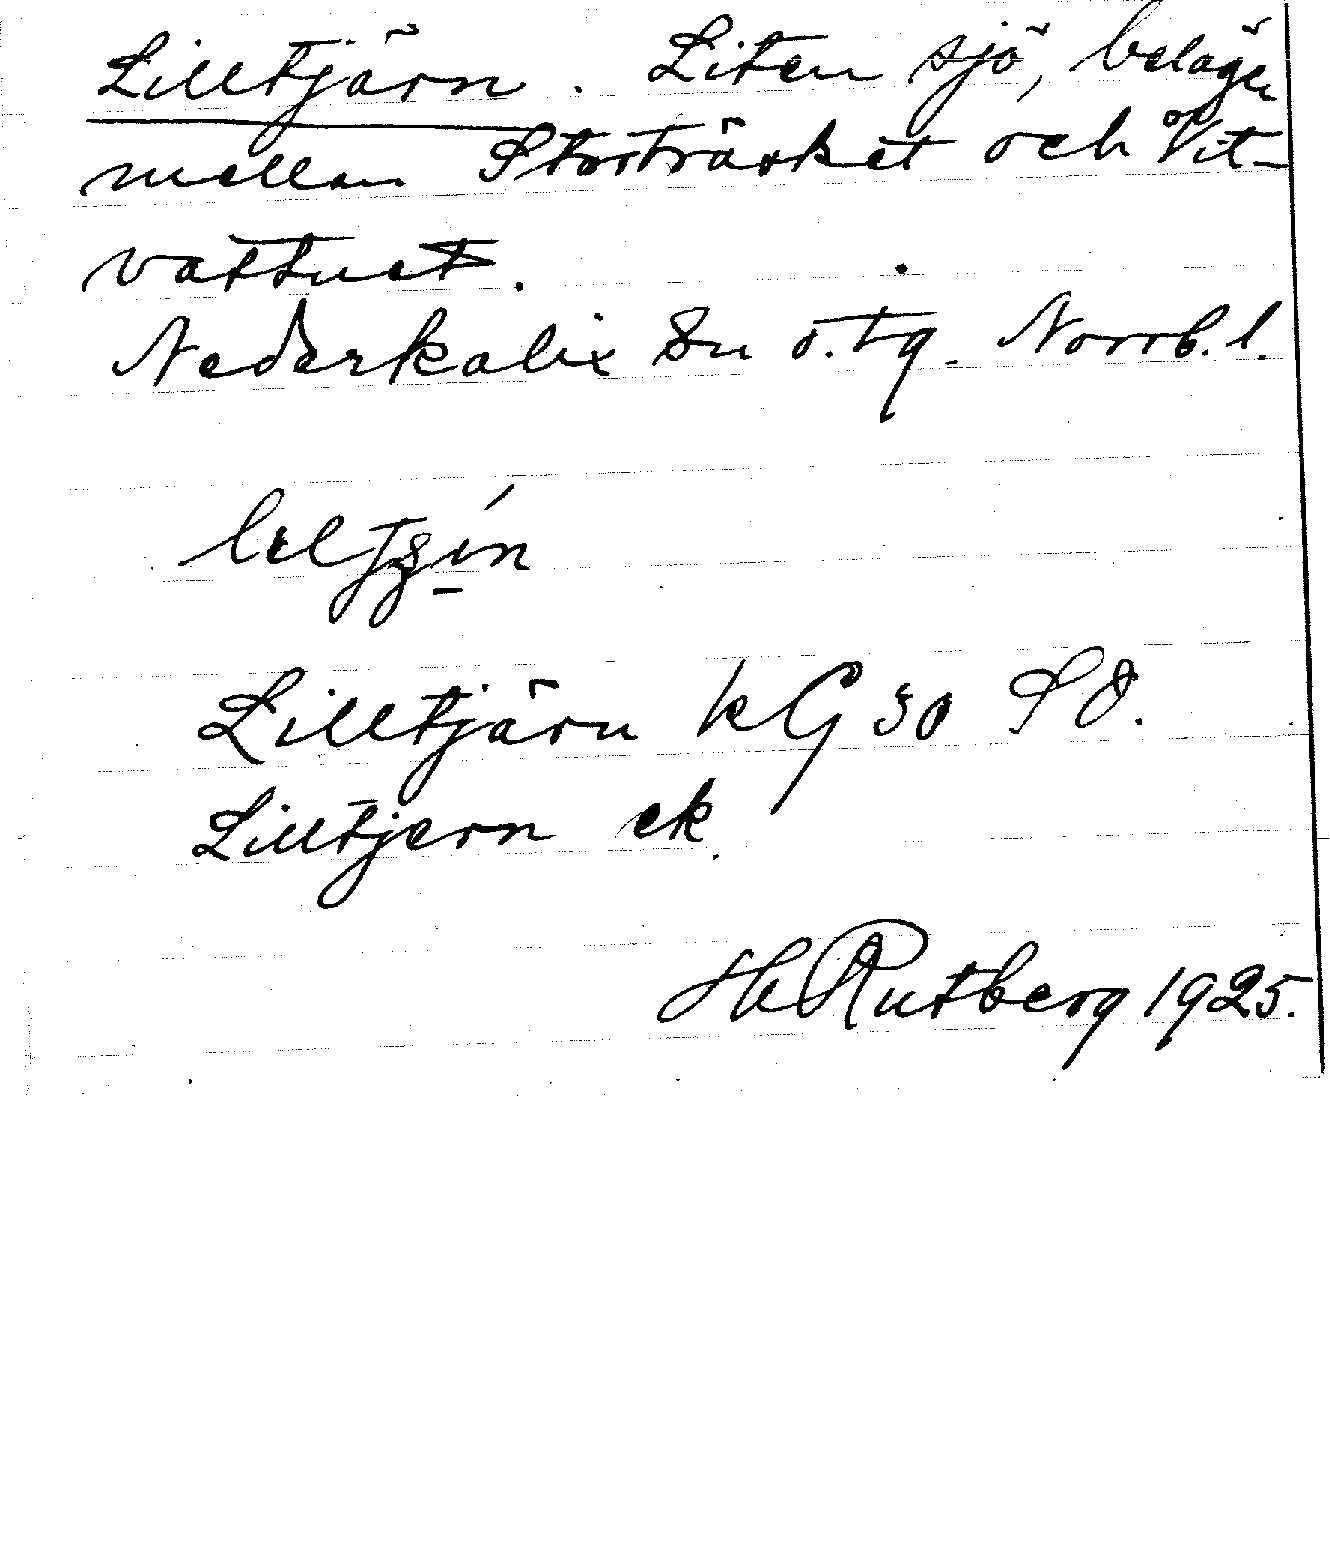 Lilltjärn. Liten sjö, belägen
mellan Storträsket och Vit-
vattnet.
Nederkalix sn o. tg. Norrb. l.
Lilltjärn kG 30 SO.
Lilltjern ek
Rutberg 1925.